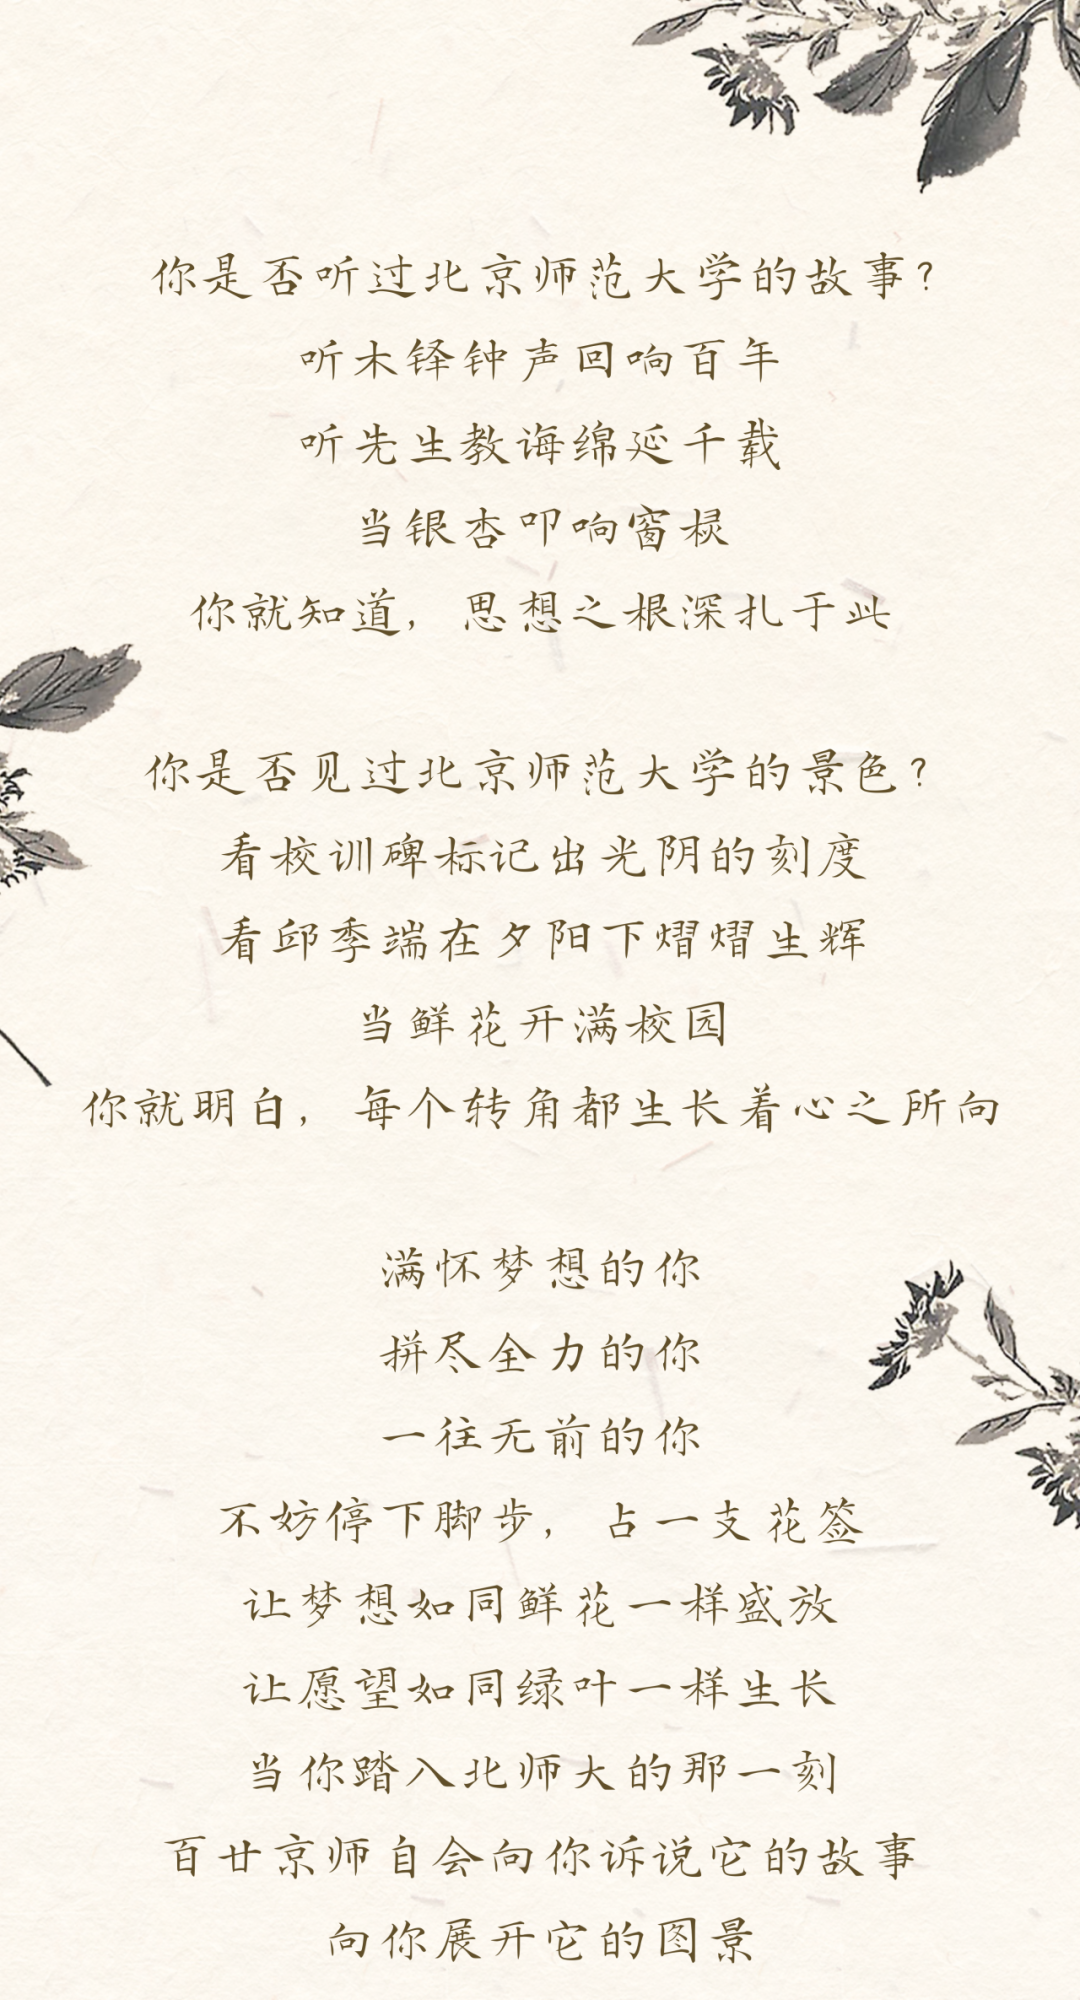 你是否听过北京师范大学的故事?
听木铎钟声回响百年
听先生教诲绵延千载
当银杏叩响窗棂
你就知道，思想之根深扎于此
你是否见过北京师范大学的景色?
看校训碑标记出光阴的刻度
看邱季端在夕阳下熠熠生辉
当鲜花开满校园
你就明白，每个转角都生长着心之所向
满怀梦想的你
拼尽全力的你
一往无前的你
不妨停下脚步，占一支花签
让梦想如同鲜花一样盛放
让愿望如同绿叶一样生长
当你踏入北师大的那一刻
百廿京师自会向你诉说它的故事
向你展开它的图景